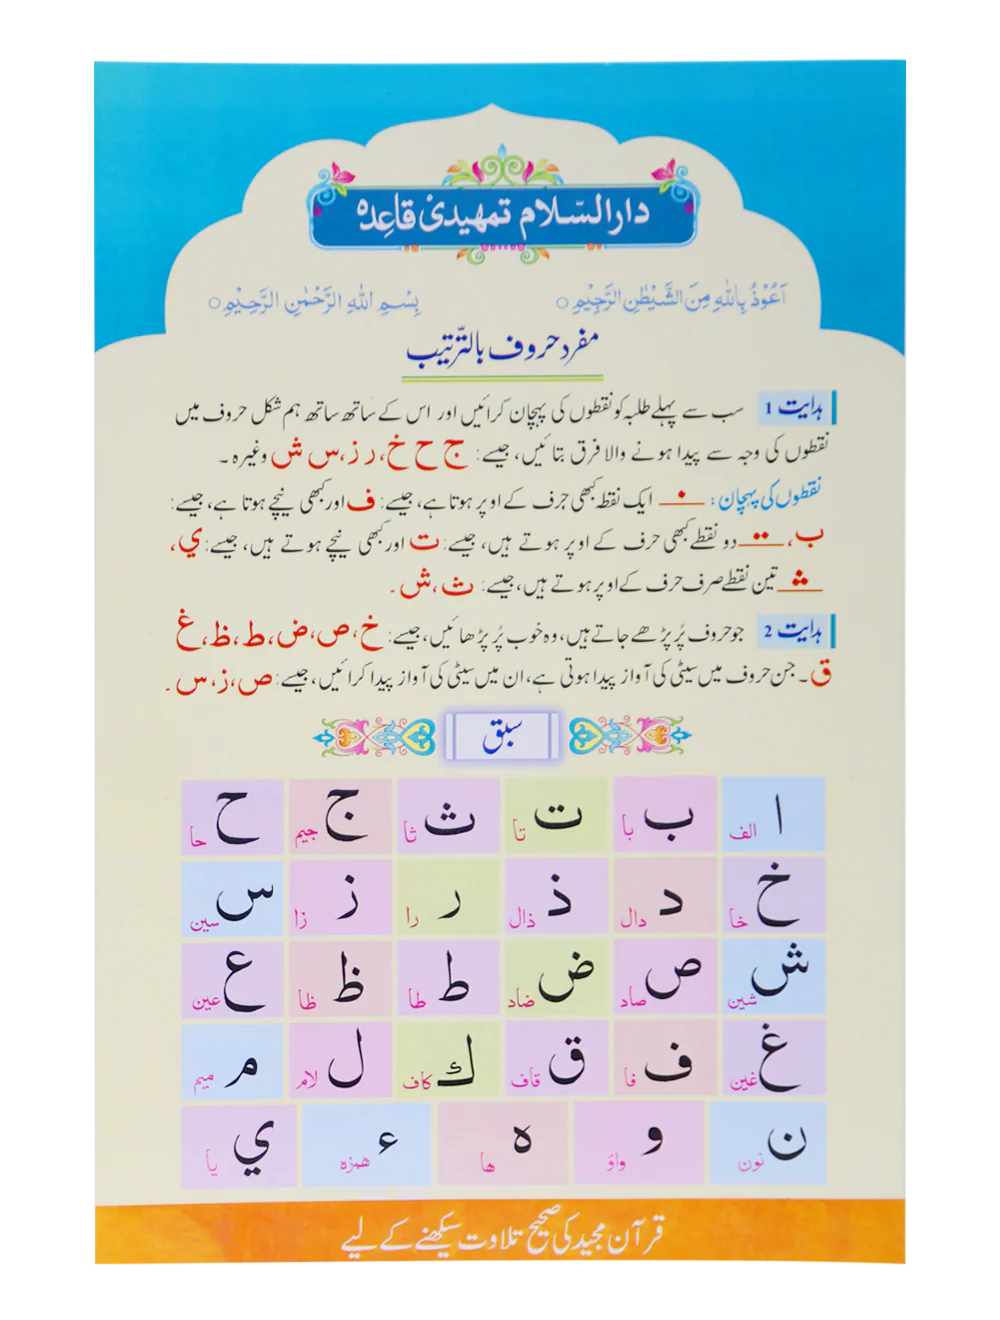 دارالسّلام تمہیدی قاعدہ
اَعُوْذُ بِاللّٰهِ مِنَ الشَّيْطٰنِ الرَّجِيْمِ ○ بِسْمِ اللّٰهِ الرَّحْمٰنِ الرَّحِيْمِ ○
مفرد حروف بالترتیب
ہدایت 1 سب سے پہلے طلبہ کو نقطوں کی پہچان کرائیں اور اس کے ساتھ ساتھ ہم شکل حروف میں
نقطوں کی وجہ سے پیدا ہونے والا فرق بتائیں، جیسے: ج ح خ، ر ز، س ش وغیرہ۔
نقطوں کی پہچان: ایک نقطہ کبھی حرف کے اوپر ہوتا ہے، جیسے: ف اور کبھی نیچے ہوتا ہے، جیسے:
ب، دو نقطے کبھی حرف کے اوپر ہوتے ہیں، جیسے: ت اور کبھی نیچے ہوتے ہیں، جیسے: ي،
تین نقطے صرف حرف کے اوپر ہوتے ہیں، جیسے: ث، ش۔
ہدایت 2 جو حروف پُر پڑھے جاتے ہیں، وہ خوب پُر پڑھائیں، جیسے: خ، ص، ض، ط، ظ، غ
ق۔ جن حروف میں سیٹی کی آواز پیدا ہوتی ہے، ان میں سیٹی کی آواز پیدا کرائیں، جیسے: ص، ز، س۔
سبق
ا الف ب با ت تا ث ثا ج جیم ح حا
خ خا د دال ذ ذال ر را ز زا س سین
ش شین ص صاد ض ضاد ط طا ظ ظا ع عین
غ غین ف فا ق قاف ك کاف ل لام م میم
ن نون و واؤ ه ها ء همزه ي یا
قرآن مجید کی صحیح تلاوت سیکھنے کے لیے